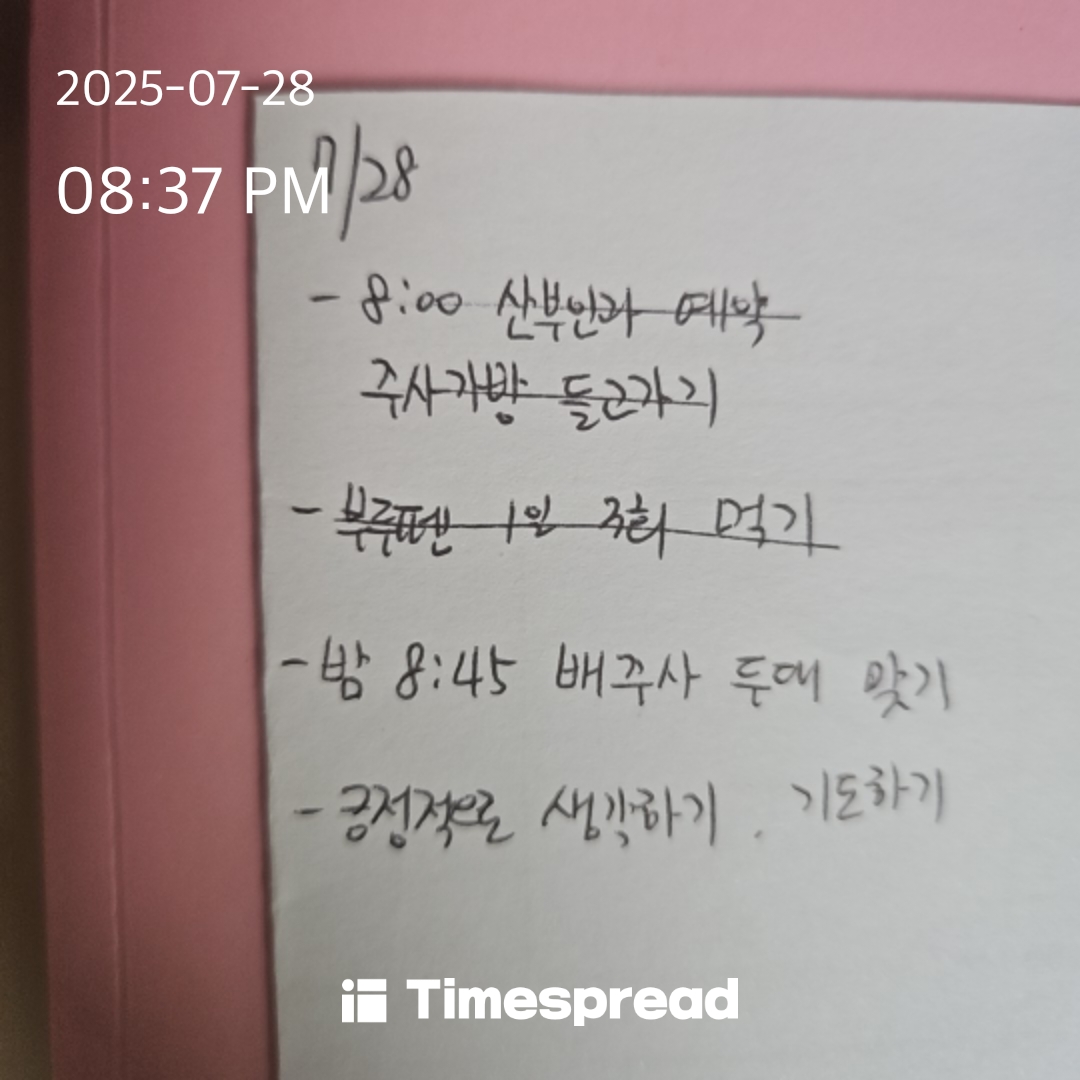 2025-07-28
08:37 PM
7/28
- 8:00 산부인과 예약
주사가방 들고가기
- 부루펜 1일 3회 먹기
- 밤 8:45 배주사 두대 맞기
- 긍정적으로 생각하기. 기도하기
Timespread